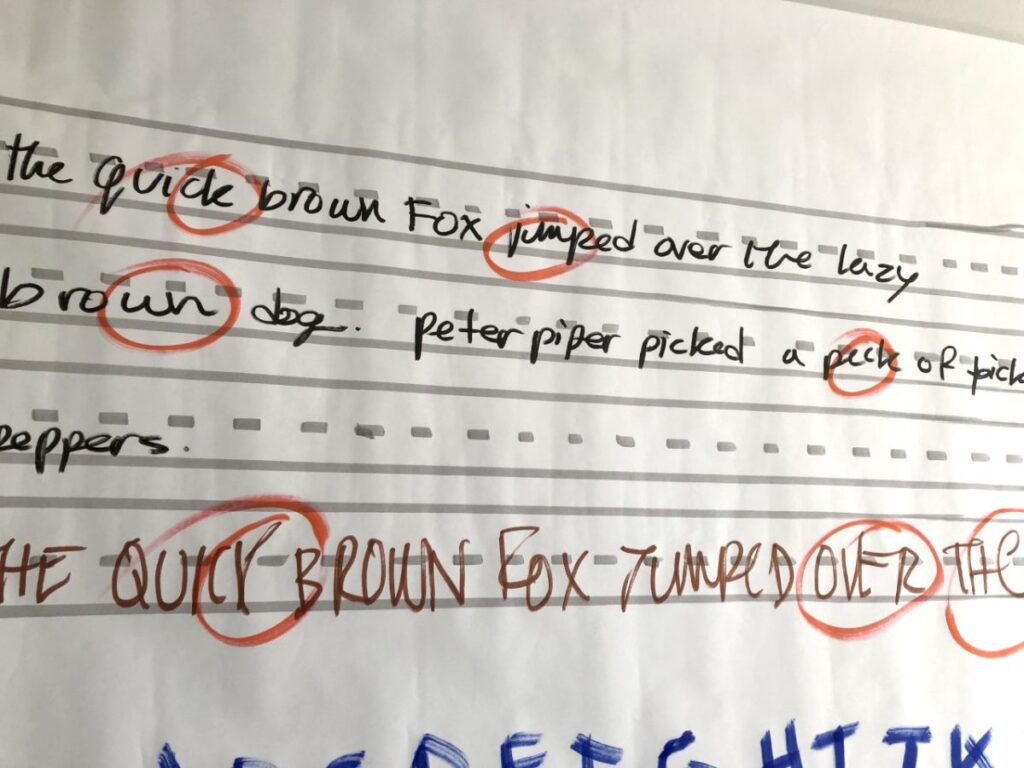 the quick brown Fox jumped over the lazy
brown dog. peter piper picked a peck of pick
peppers.
HE QUICK BROWN FOX JUMPED OVER THE
A B C D E F G H I J K